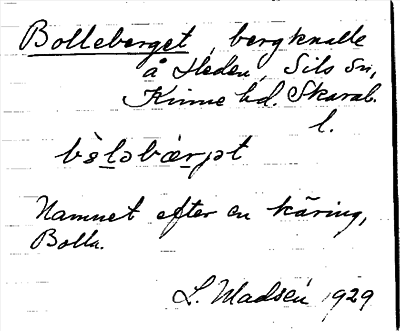 Bolleberget, bergknalle
å Heden, Sils sn,
Kinne hd. Skarab.
l.
Namnet efter en käring,
Bolla.
L. Madsén 1929